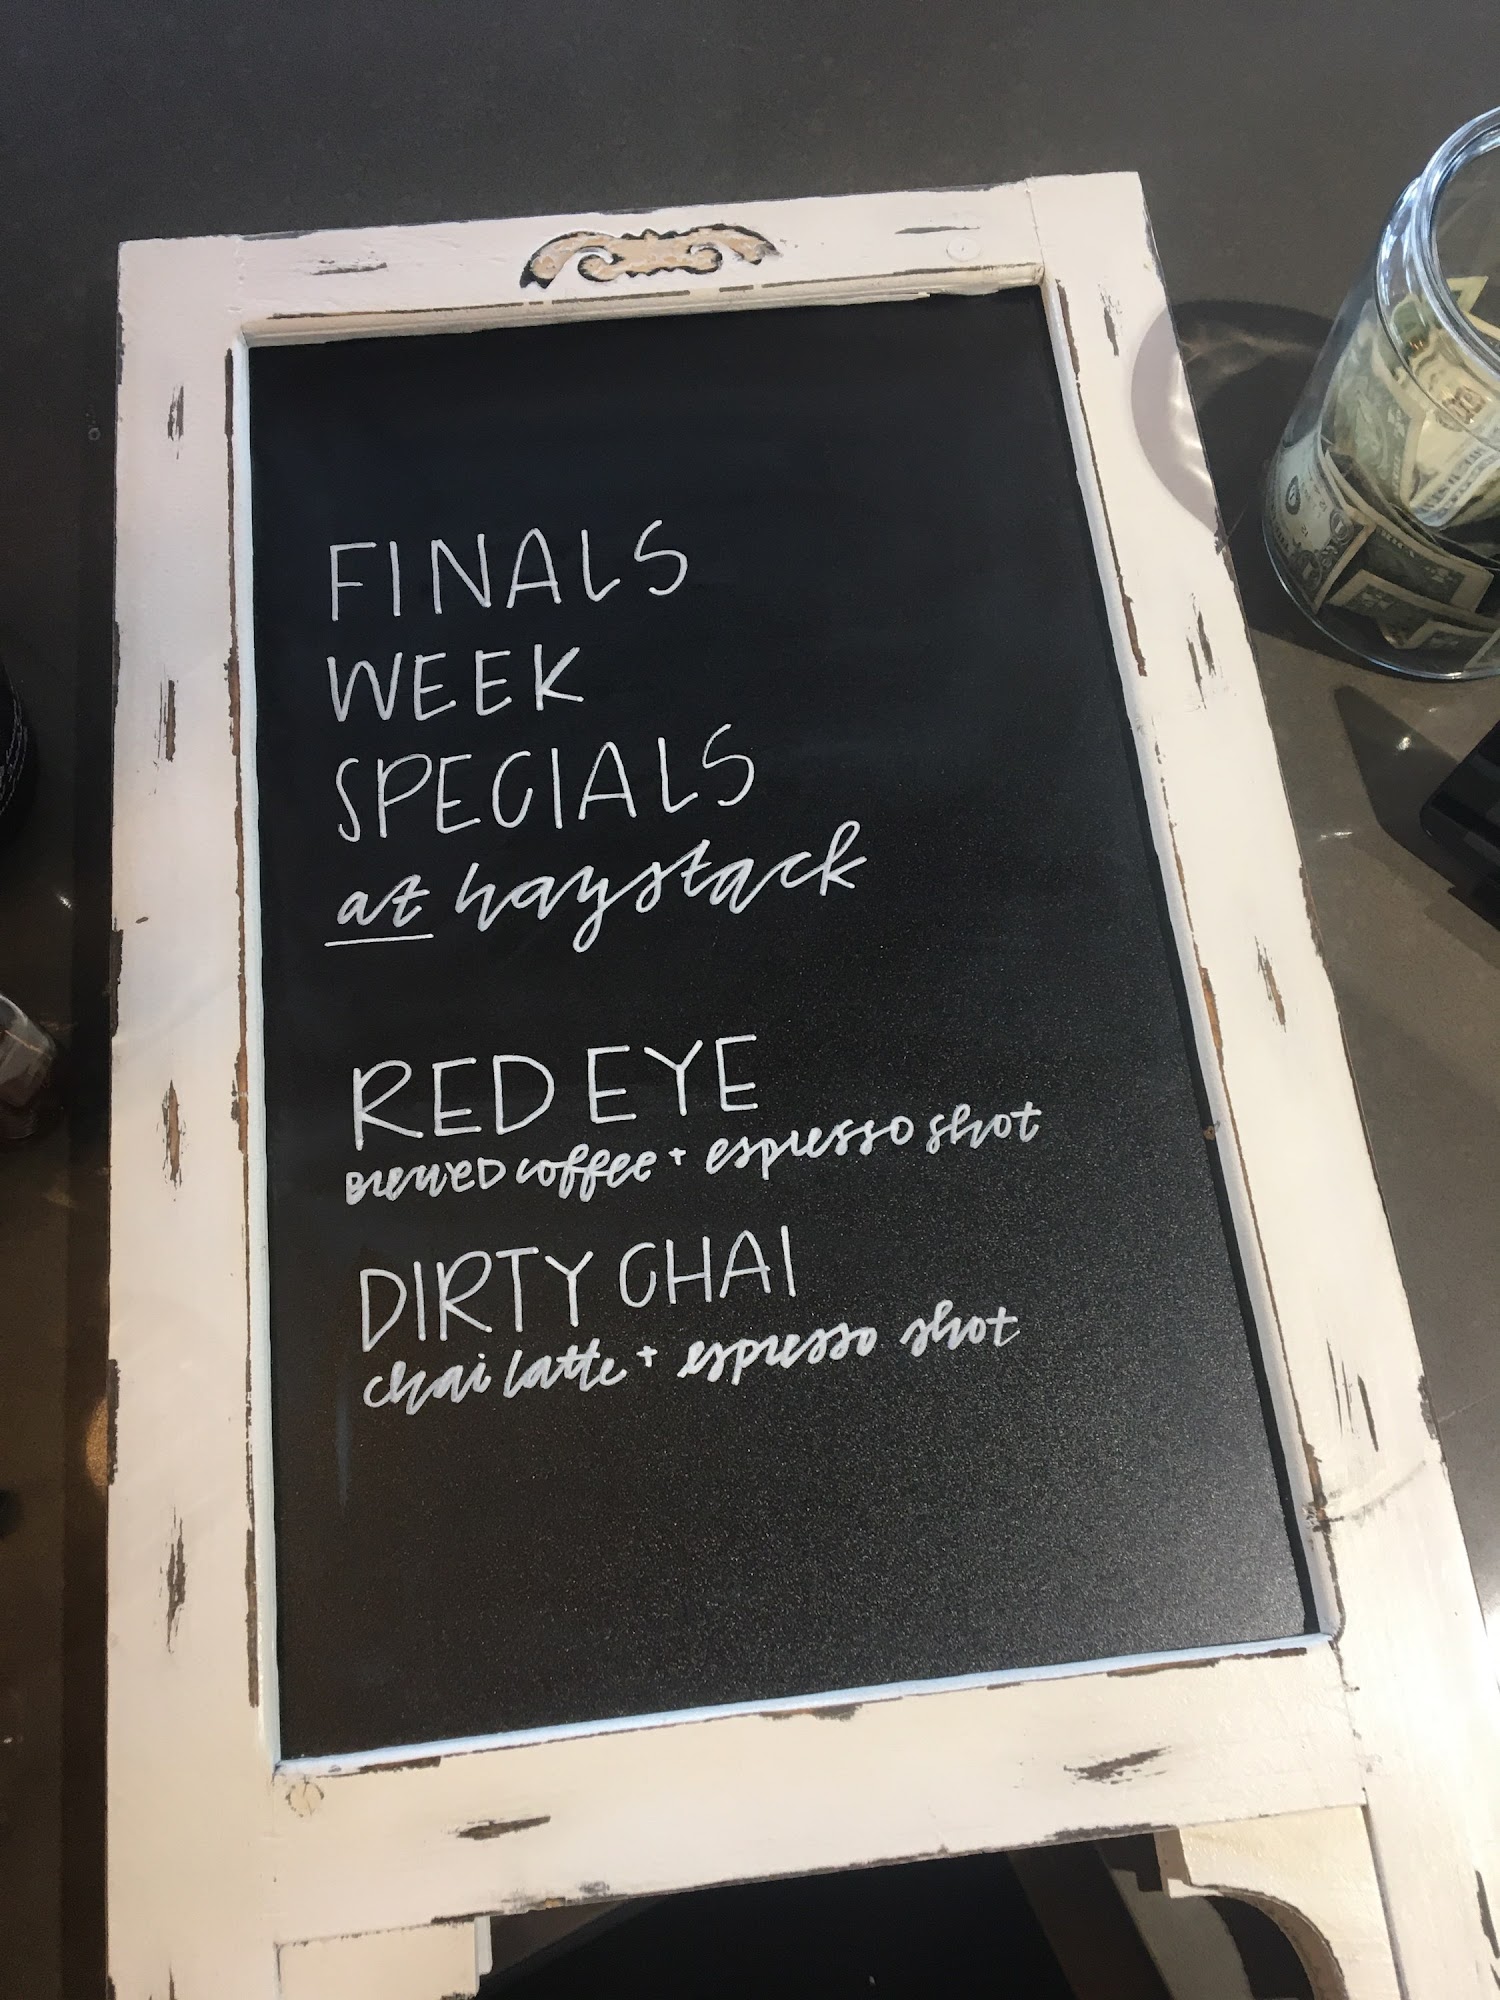 FINALS
WEEK
SPECIALS
at haystack
RED EYE
BREWED coffee + espresso shot
DIRTY CHAI
chai latte + espresso shot